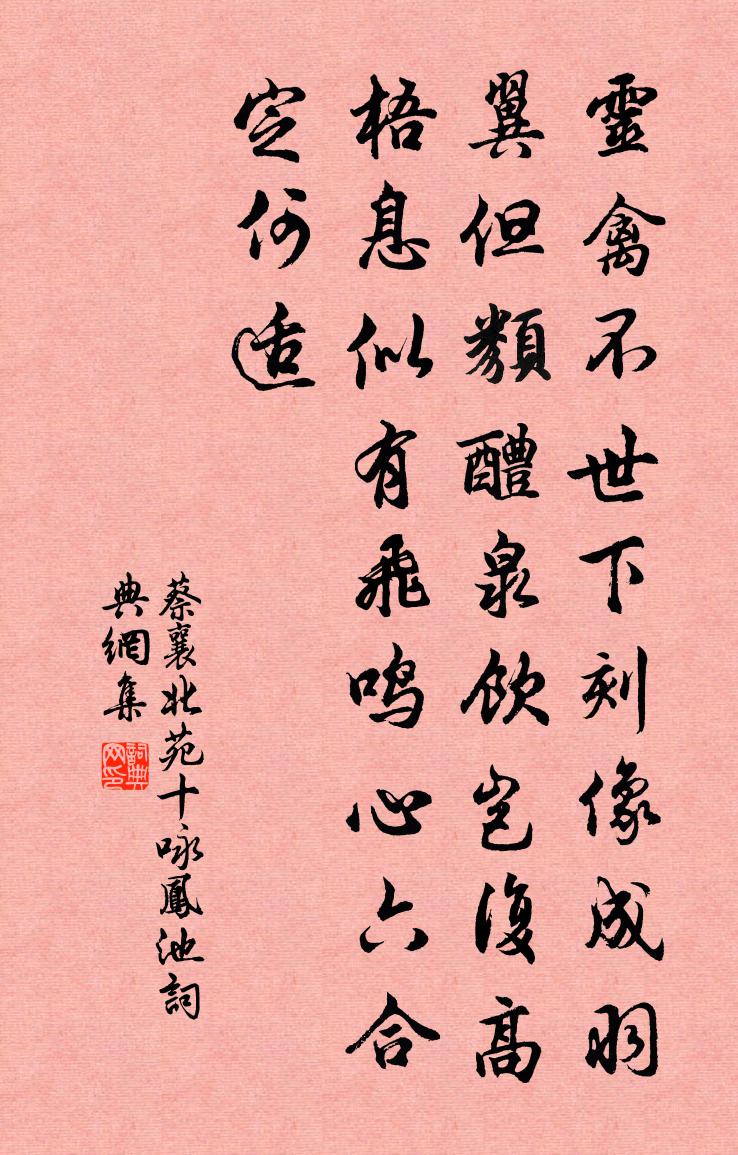 靈禽不世下刻像成羽
翼但類醴泉飲豈復高
梧息似有飛鳴心六合
定何適
蔡襄北苑十咏鳳池詞
典網集
詞典
网印